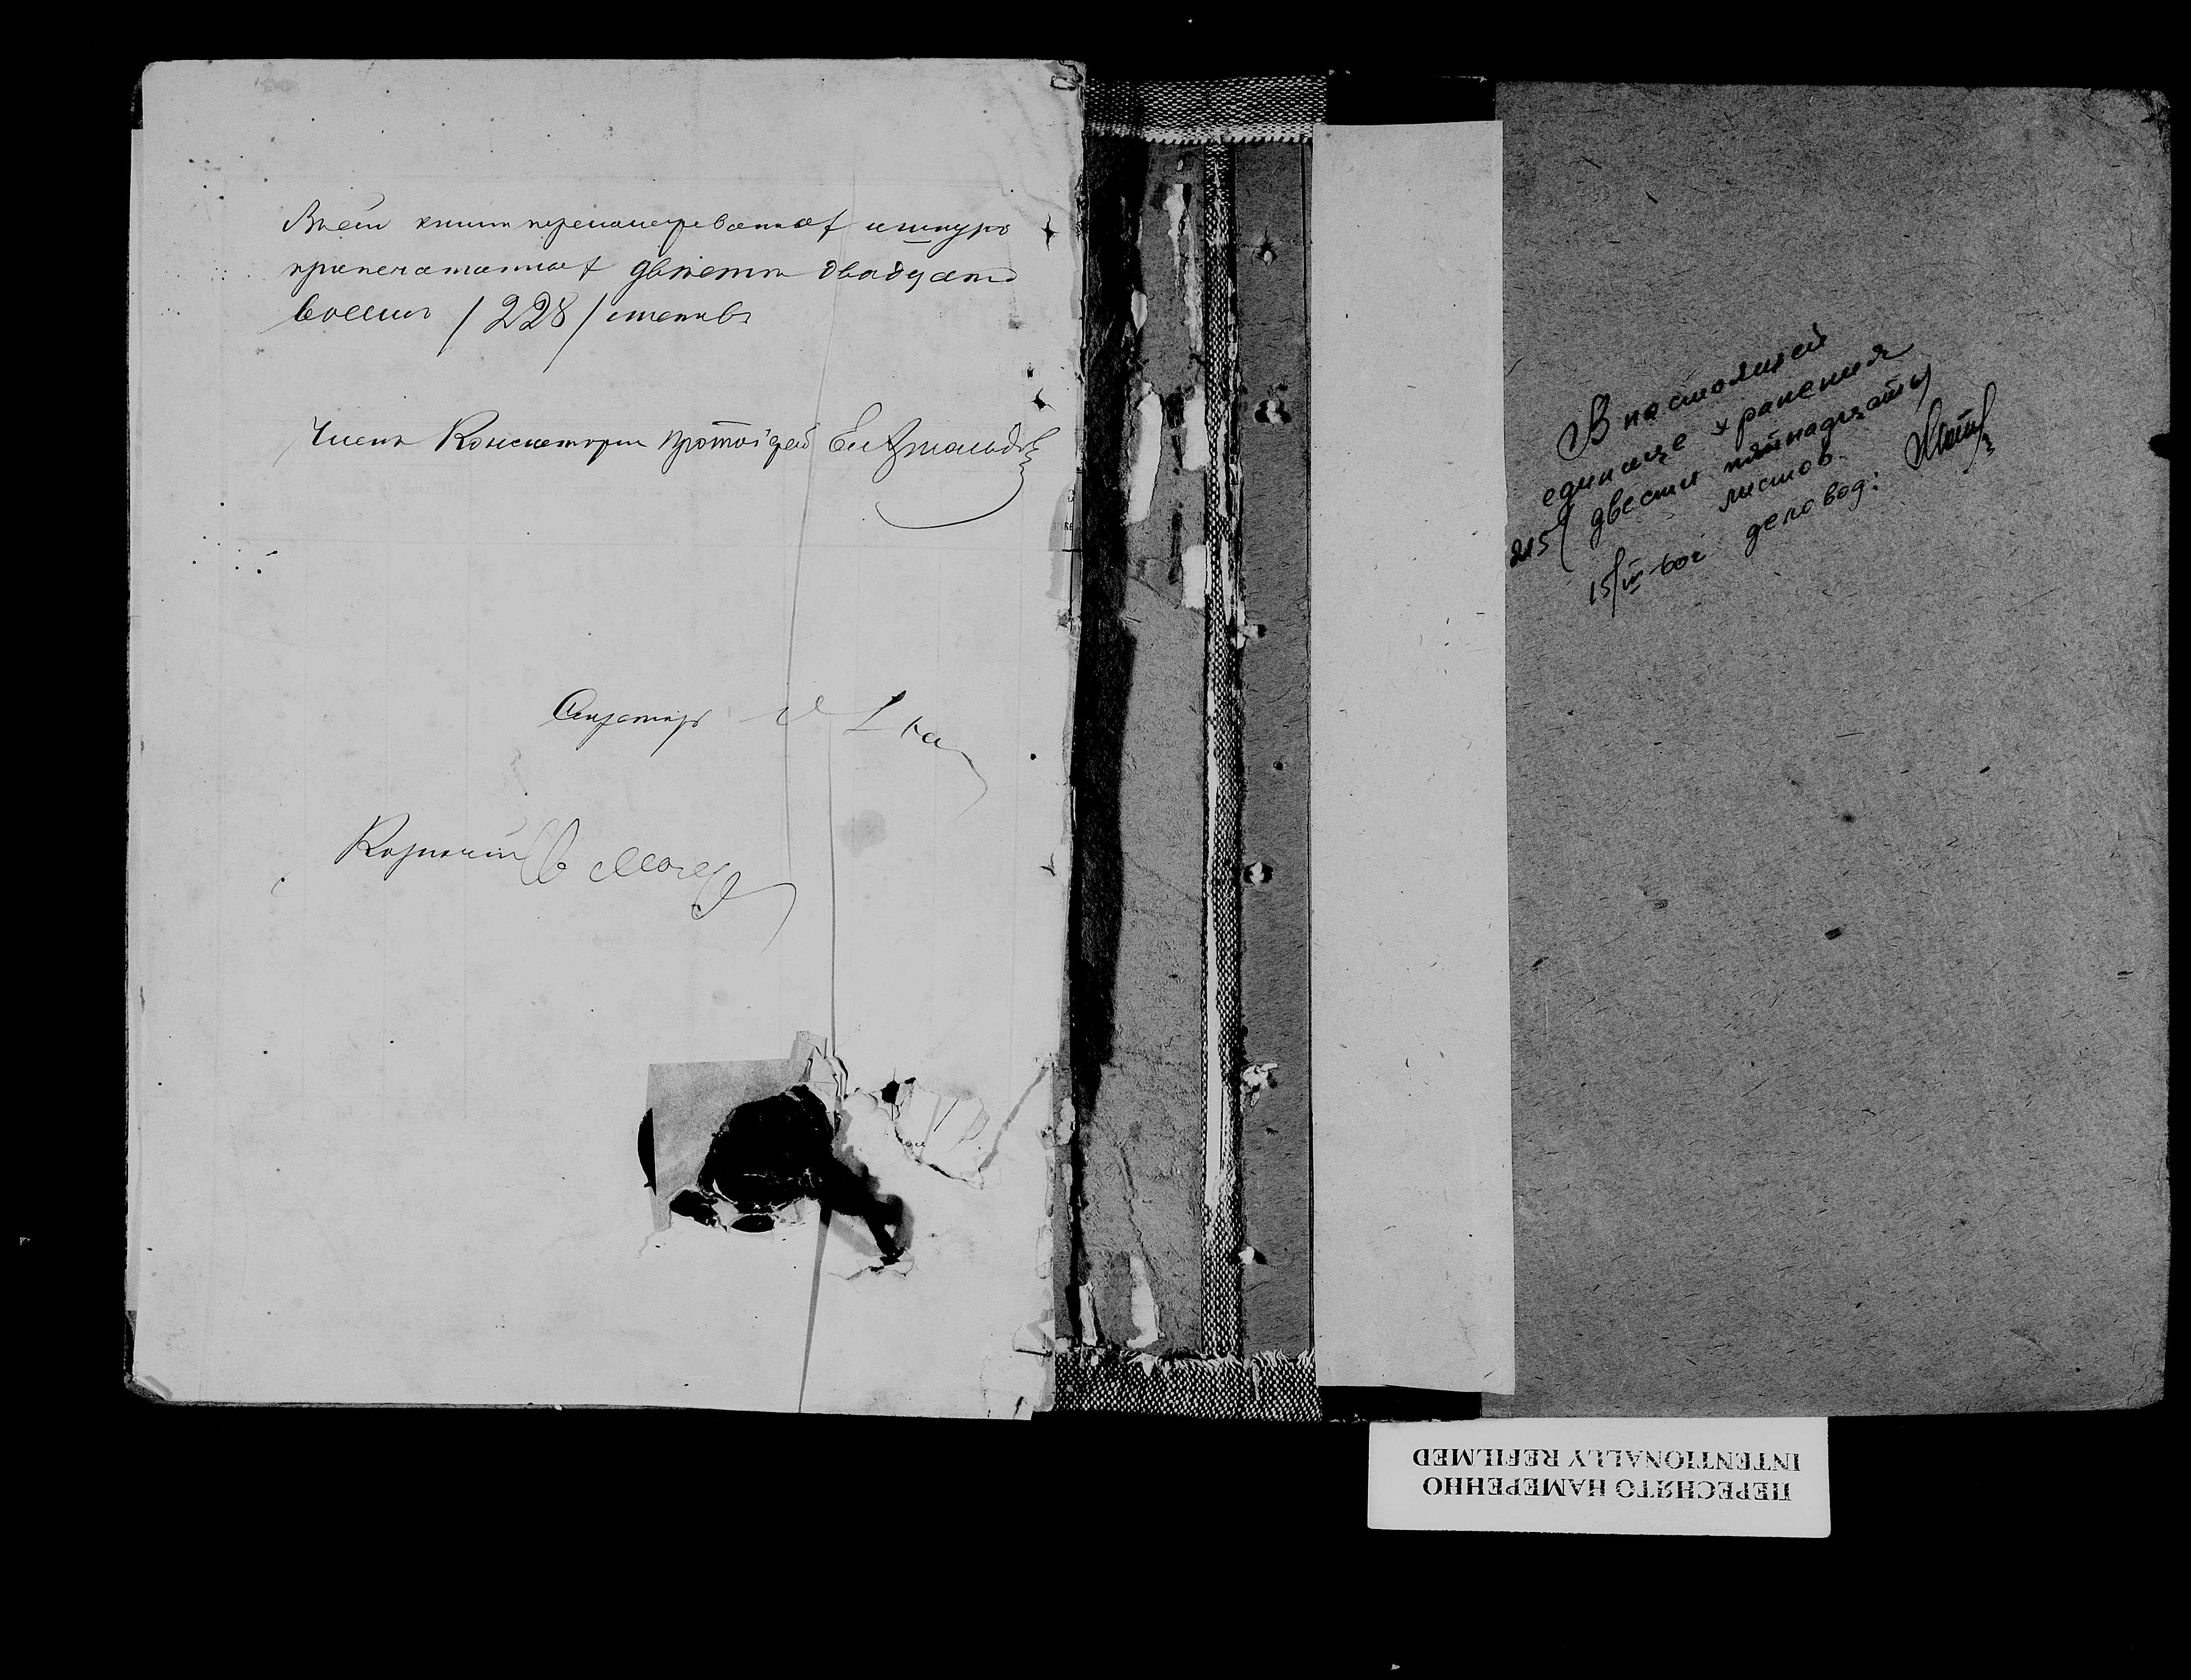 Въ сей книгѣ перенумерованныхъ и шнуро
припечатанныхъ двѣсти двадцать
восемь /228/ листовъ
Членъ Консисторіи Протоіерей
Секретарь
Казначей
В настоящей
единице хранения
215/ двести пятнадцать/
листов.
15/IV 60г деловод:
ПЕРЕСНЯТО НАМЕРЕННО
INTENTIONALLY REFILMED